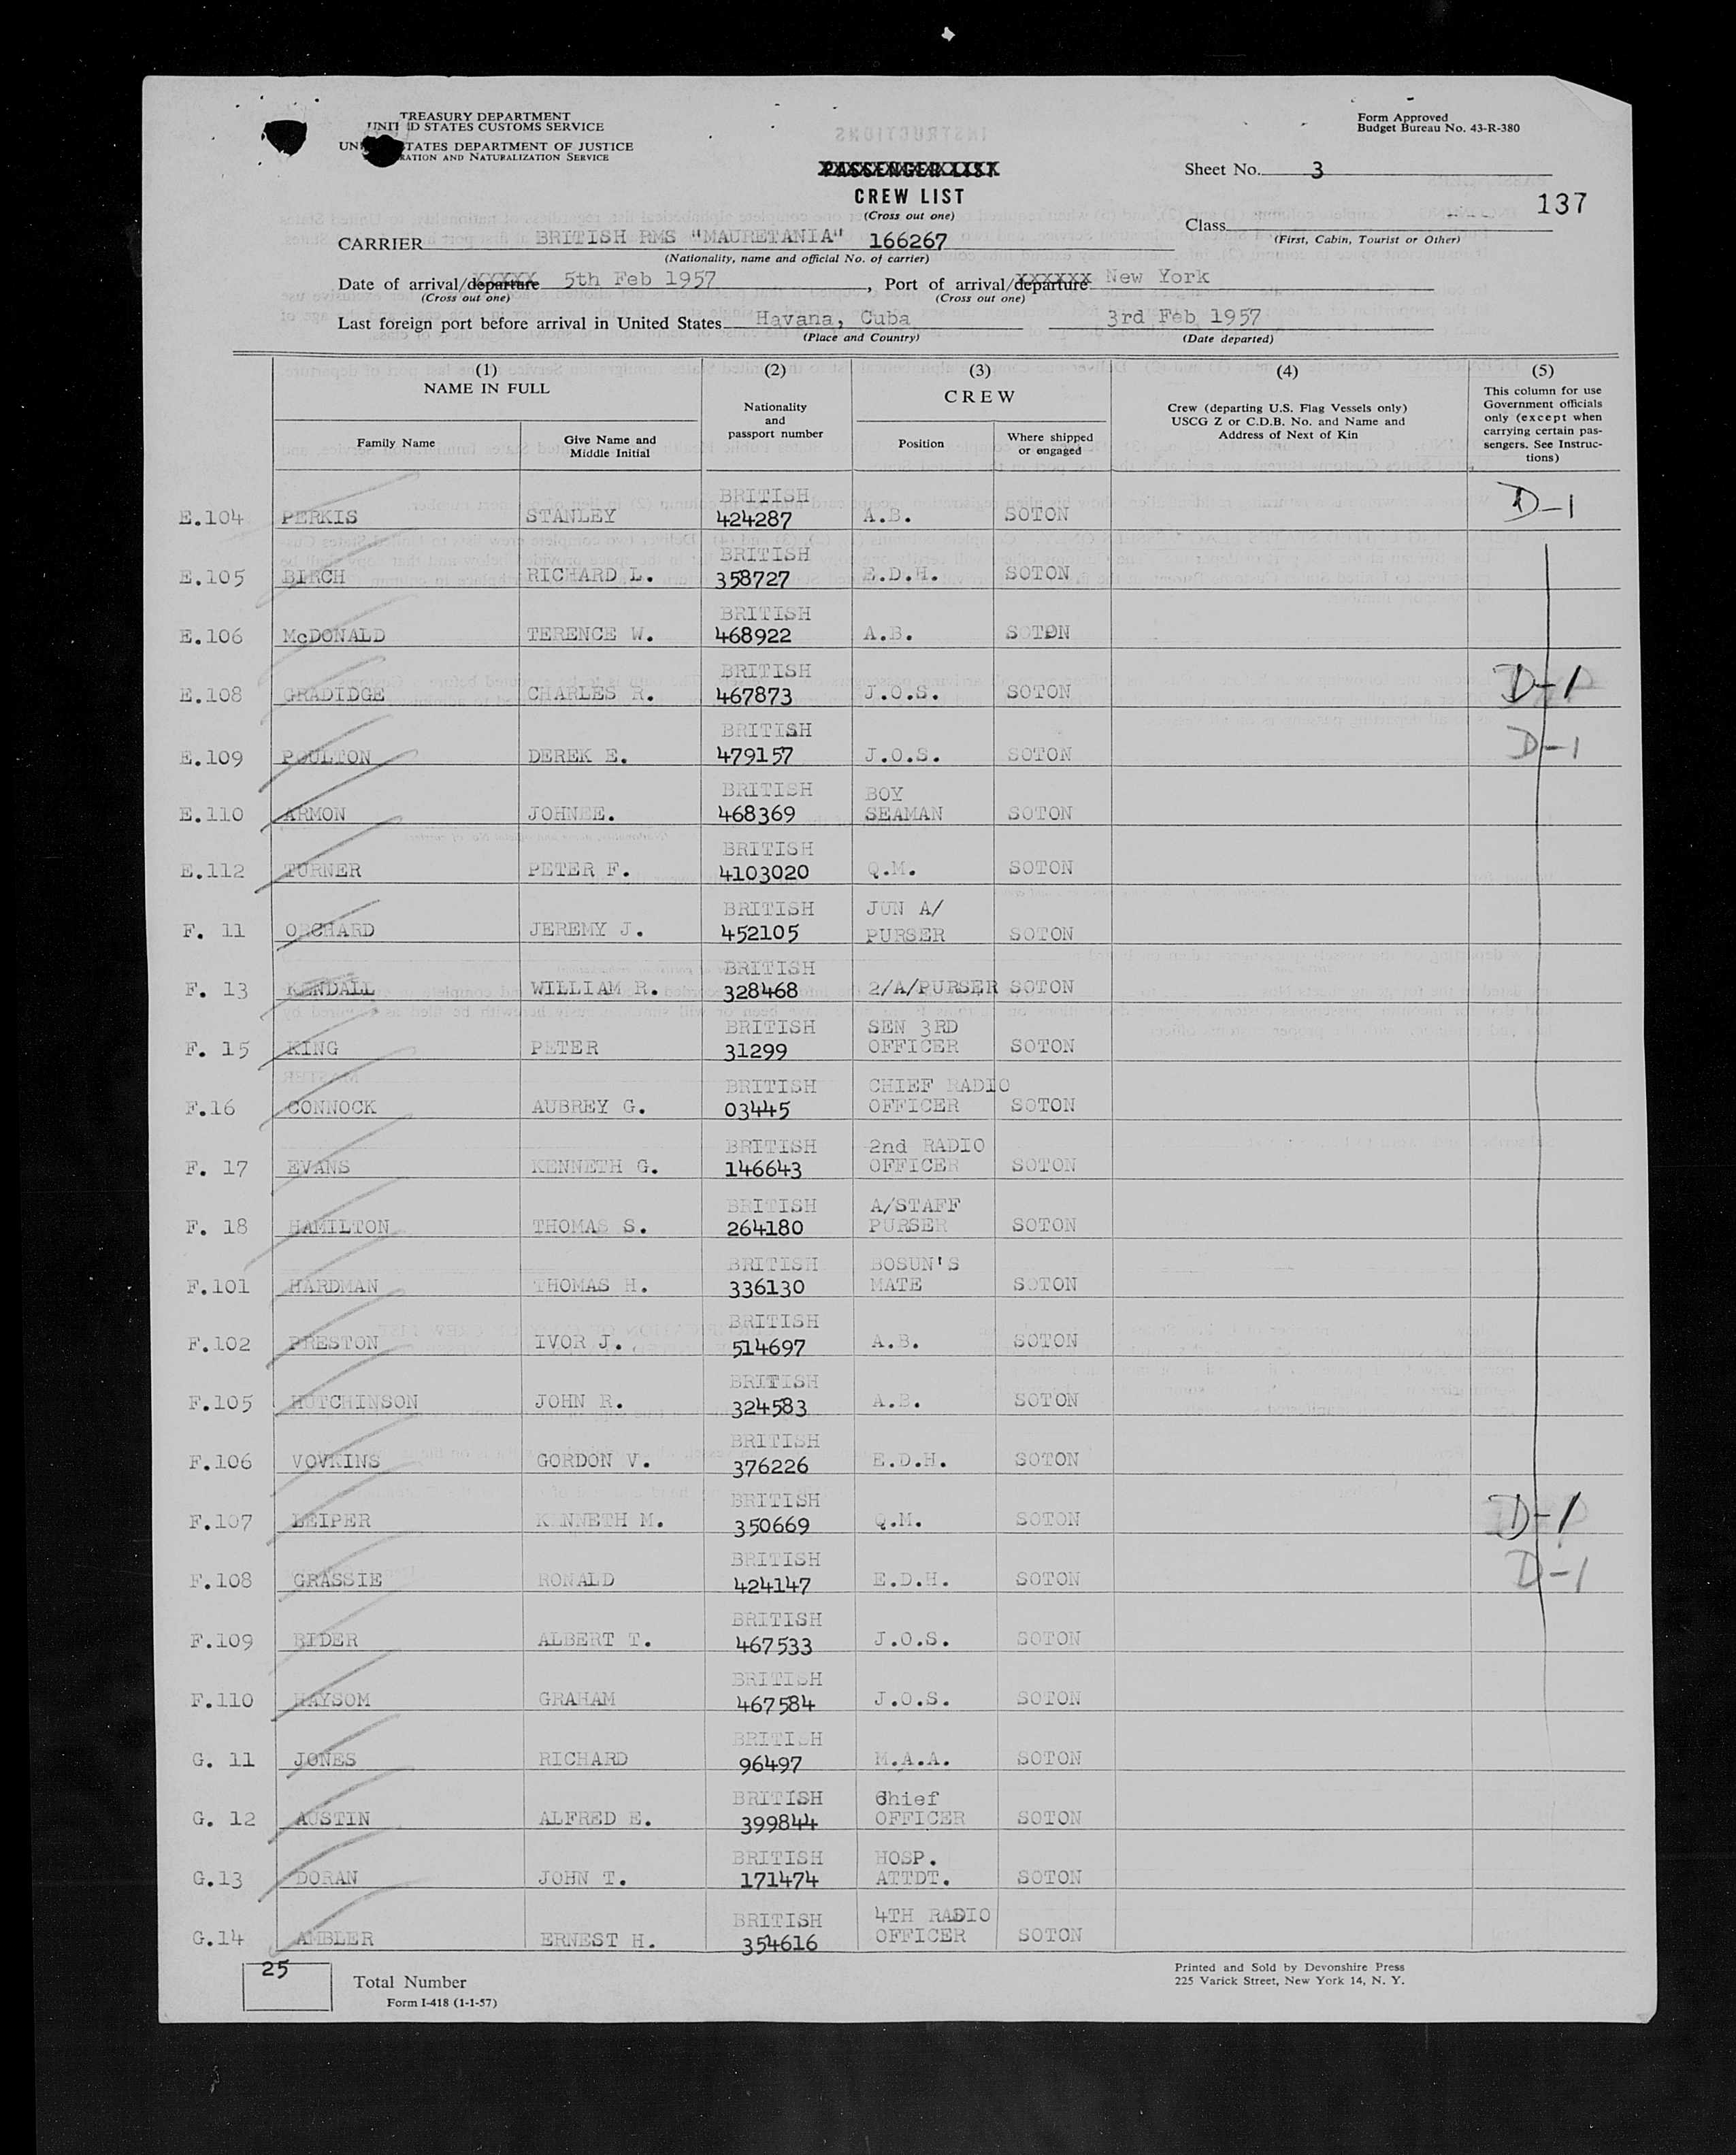 TREASURY DEPARTMENT
UNIT ID STATES CUSTOMS SERVICE
UN TATES DEPARTMENT OF JUSTICE
RATION AND NATURALIZATION SERVICE
Form Approved
Budget Bureau No. 43-R-380
PASSENGER LIST
CREW LIST
(Cross out one)
Sheet No. 3
137
Class
(First, Cabin, Tourist or Other)
CARRIER BRITISH RMS "MAURETANIA" 166267
(Nationality, name and official No. of carrier)
Date of arrival/departure 5th Feb 1957, Port of arrival/departure New York
(Cross out one) (Cross out one)
Last foreign port before arrival in United States Havana, Cuba 3rd Feb 1957
(Place and Country) (Date departed)
(1) (2) (3) (4) (5)
NAME IN FULL
Family Name
Give Name and
Middle Initial
Nationality
and
passport number
CREW
Position
Where shipped
or engaged
Crew (departing U.S. Flag Vessels only)
USCG Z or C.D.B. No. and Name and
Address of Next of Kin
This column for use
Government officials
only (except when
carrying certain pas-
sengers. See Instruc-
tions)
BRITISH
E.104 PERKIS STANLEY 424287 A.B. SOTON D-1
BRITISH
E.105 BIRCH RICHARD L. 358727 E.D.H. SOTON
BRITISH
E.106 McDONALD TERENCE W. 468922 A.B. SOTON
BRITISH
E.108 GRADIDGE CHARLES R. 467873 J.O.S. SOTON D-1
BRITISH
E.109 POULTON DEREK E. 479157 J.O.S. SOTON D-1
BRITISH BOY
E.110 ARMON JOHN E. 468369 SEAMAN SOTON
BRITISH
E.112 TURNER PETER F. 4103020 Q.M. SOTON
BRITISH JUN A/
F. 11 ORCHARD JEREMY J. 452105 PURSER SOTON
BRITISH
F. 13 KENDALL WILLIAM R. 328468 2/A/PURSER SOTON
BRITISH SEN 3RD
F. 15 KING PETER 31299 OFFICER SOTON
BRITISH CHIEF RADIO
F.16 CONNOCK AUBREY G. 03445 OFFICER SOTON
BRITISH 2nd RADIO
F. 17 EVANS KENNETH G. 146643 OFFICER SOTON
BRITISH A/STAFF
F. 18 HAMILTON THOMAS S. 264180 PURSER SOTON
BRITISH BOSUN'S
F.101 HARDMAN THOMAS H. 336130 MATE SOTON
BRITISH
F.102 PRESTON IVOR J. 514697 A.B. SOTON
BRITISH
F.105 HUTCHINSON JOHN R. 324583 A.B. SOTON
BRITISH
F.106 VOVKINS GORDON V. 376226 E.D.H. SOTON
BRITISH
F.107 LEIPER KENNETH M. 350669 Q.M. SOTON D-1
BRITISH
F.108 GRASSIE RONALD 424147 E.D.H. SOTON D-1
BRITISH
F.109 RIDER ALBERT T. 467533 J.O.S. SOTON
BRITISH
F.110 HAYSOM GRAHAM 467584 J.O.S. SOTON
BRITISH
G. 11 JONES RICHARD 96497 M.A.A. SOTON
BRITISH Chief
G. 12 AUSTIN ALFRED E. 399844 OFFICER SOTON
BRITISH HOSP.
G.13 DORAN JOHN T. 171474 ATTDT. SOTON
BRITISH 4TH RADIO
G.14 AMBLER ERNEST H. 354616 OFFICER SOTON
25 Total Number
Form I-418 (1-1-57)
Printed and Sold by Devonshire Press
225 Varick Street, New York 14, N. Y.